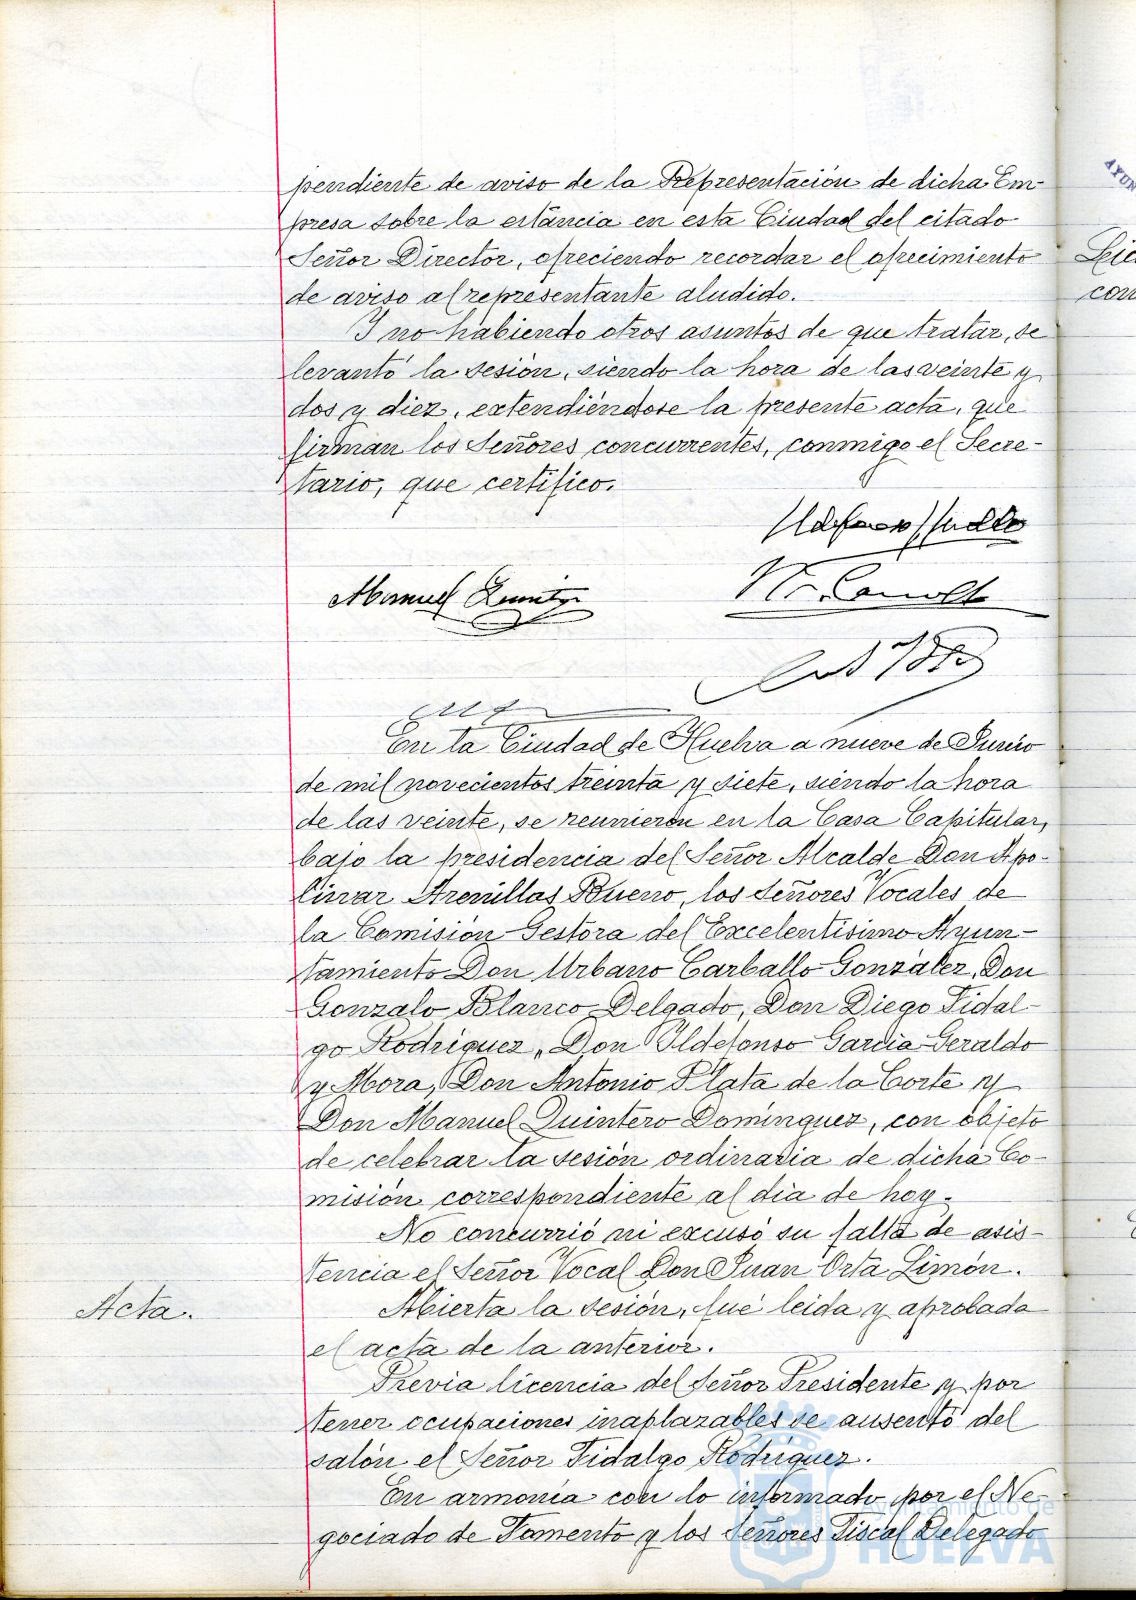 pendiente de aviso de la Representación de dicha Em-
presa sobre la estáncia en esta Ciudad del citado
Señor Director, ofreciendo recordar el ofrecimiento
de aviso al representante aludido.
Y no habiendo otros asuntos de que tratar, se
levantó la sesión, siendo la hora de las veinte y
dos y diez, extendiéndose la presente acta, que
firman los Señores concurrentes, conmigo el Secre-
tario, que certifico.
Manuel Quintero
En la Ciudad de Huelva a nueve de Junio
de mil novecientos treinta y siete, siendo la hora
de las veinte, se reunieron en la Casa Capitular,
bajo la presidencia del Señor Alcalde Don Apo-
linar Arenillas Bueno, los Señores Vocales de
la Comisión Gestora del Excelentísimo Ayun-
tamiento Don Urbano Carballo González, Don
Gonzalo Blanco Delgado, Don Diego Fidal-
go Rodríguez, Don Ildefonso García Geraldo
y Mora, Don Antonio Plata de la Corte y
Don Manuel Quintero Domínguez, con objeto
de celebrar la sesión ordinaria de dicha Co-
misión correspondiente al día de hoy.
No concurrió ni excusó su falta de asis-
tencia el Señor Vocal Don Juan Orta Limón.
Acta.
Abierta la sesión, fué leida y aprobada
el acta de la anterior.
Previa licencia del Señor Presidente y por
tener ocupaciones inaplazables se ausentó del
salón el Señor Fidalgo Rodríguez.
En armonía con lo informado por el Ne-
gociado de Fomento y los Señores Fiscal Delegado
Ayuntamiento de
HUELVA